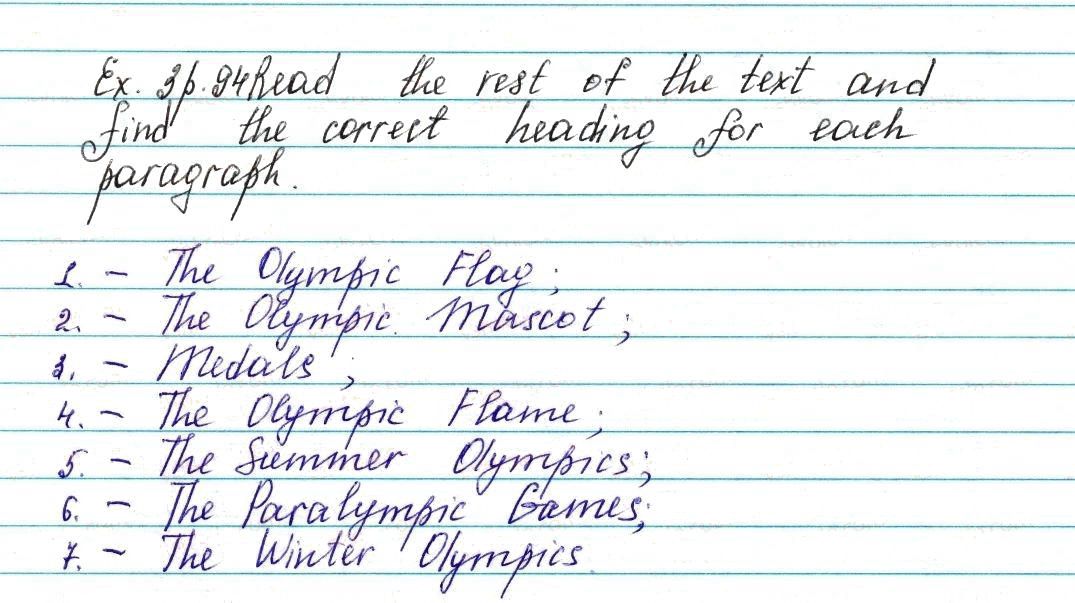 Ex. 3p. 94 Read the rest of the text and
find the correct heading for each
paragraph.
1. - The Olympic Flag;
2. - The Olympic Mascot;
3. - Medals;
4. - The Olympic Flame;
5. - The Summer Olympics;
6. - The Paralympic Games;
7. - The Winter Olympics.